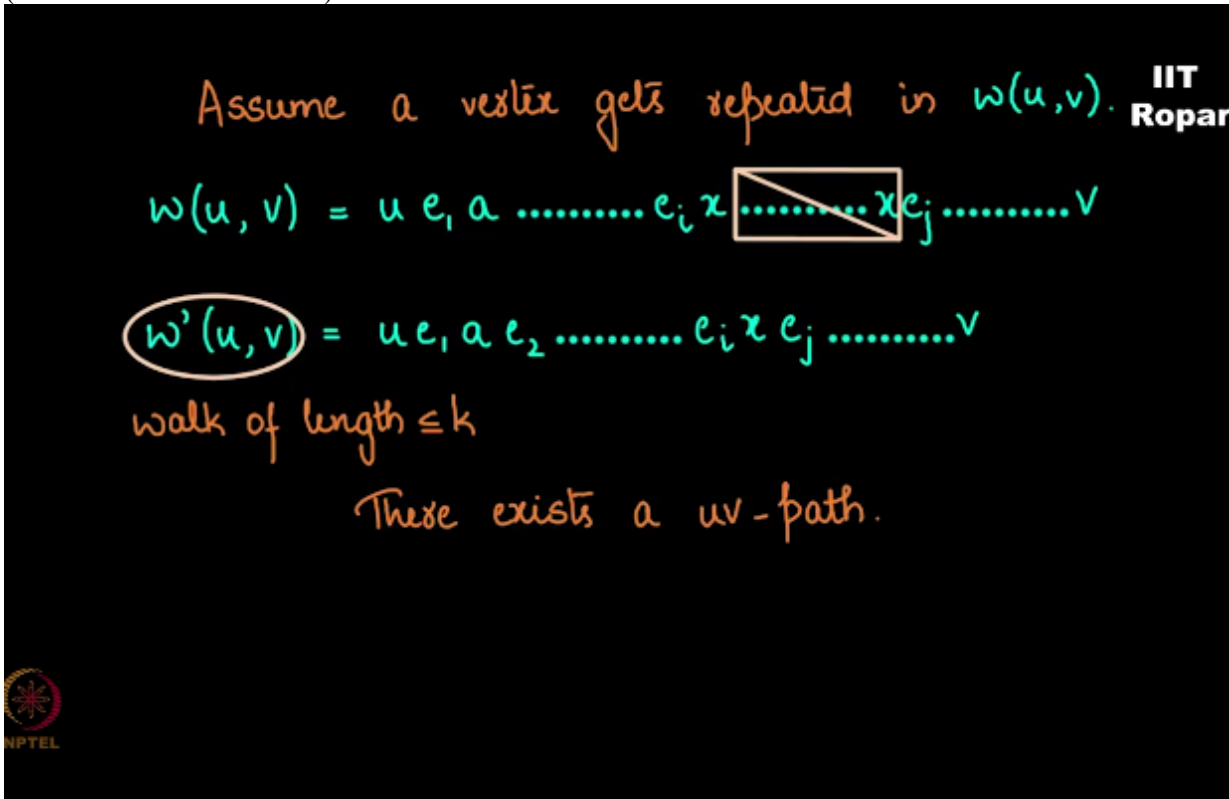 Assume a vertex gets repeated in w(u,v).
IIT
Ropar
w(u, v) = u e₁ a .......... eᵢ x .......... x eⱼ .......... v
w'(u, v) = u e₁ a e₂ .......... eᵢ x eⱼ .......... v
walk of length ≤ k
There exists a uv-path.
NPTEL